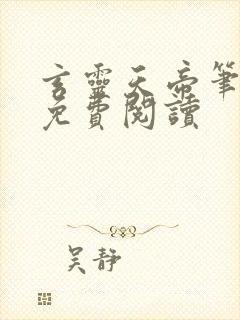 言靈天帝筆
免費閱讀
吴靜